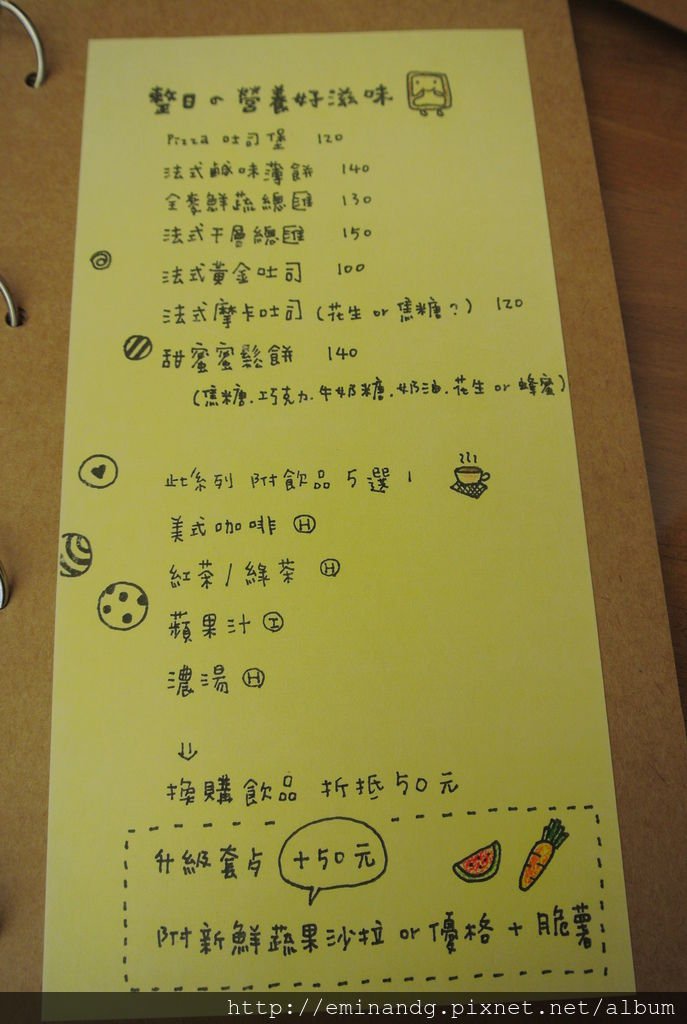 整日の營養好滋味
Pizza 吐司堡 120
法式鹹味薄餅 140
全麥鮮蔬總匯 130
法式千層總匯 150
法式黃金吐司 100
法式摩卡吐司 (花生 or 焦糖?) 120
甜蜜蜜鬆餅 140
(焦糖.巧克力.牛奶糖.奶油.花生 or 蜂蜜)
此系列 附飲品 5 選 1
美式咖啡 Ⓗ
紅茶/綠茶 Ⓗ
蘋果汁 Ⓘ
濃湯 Ⓗ
⇓
換購飲品 折抵 50元
升級套歺 +50元
附新鮮蔬果沙拉 or 優格 + 脆薯
http://eminandg.pixnet.net/album